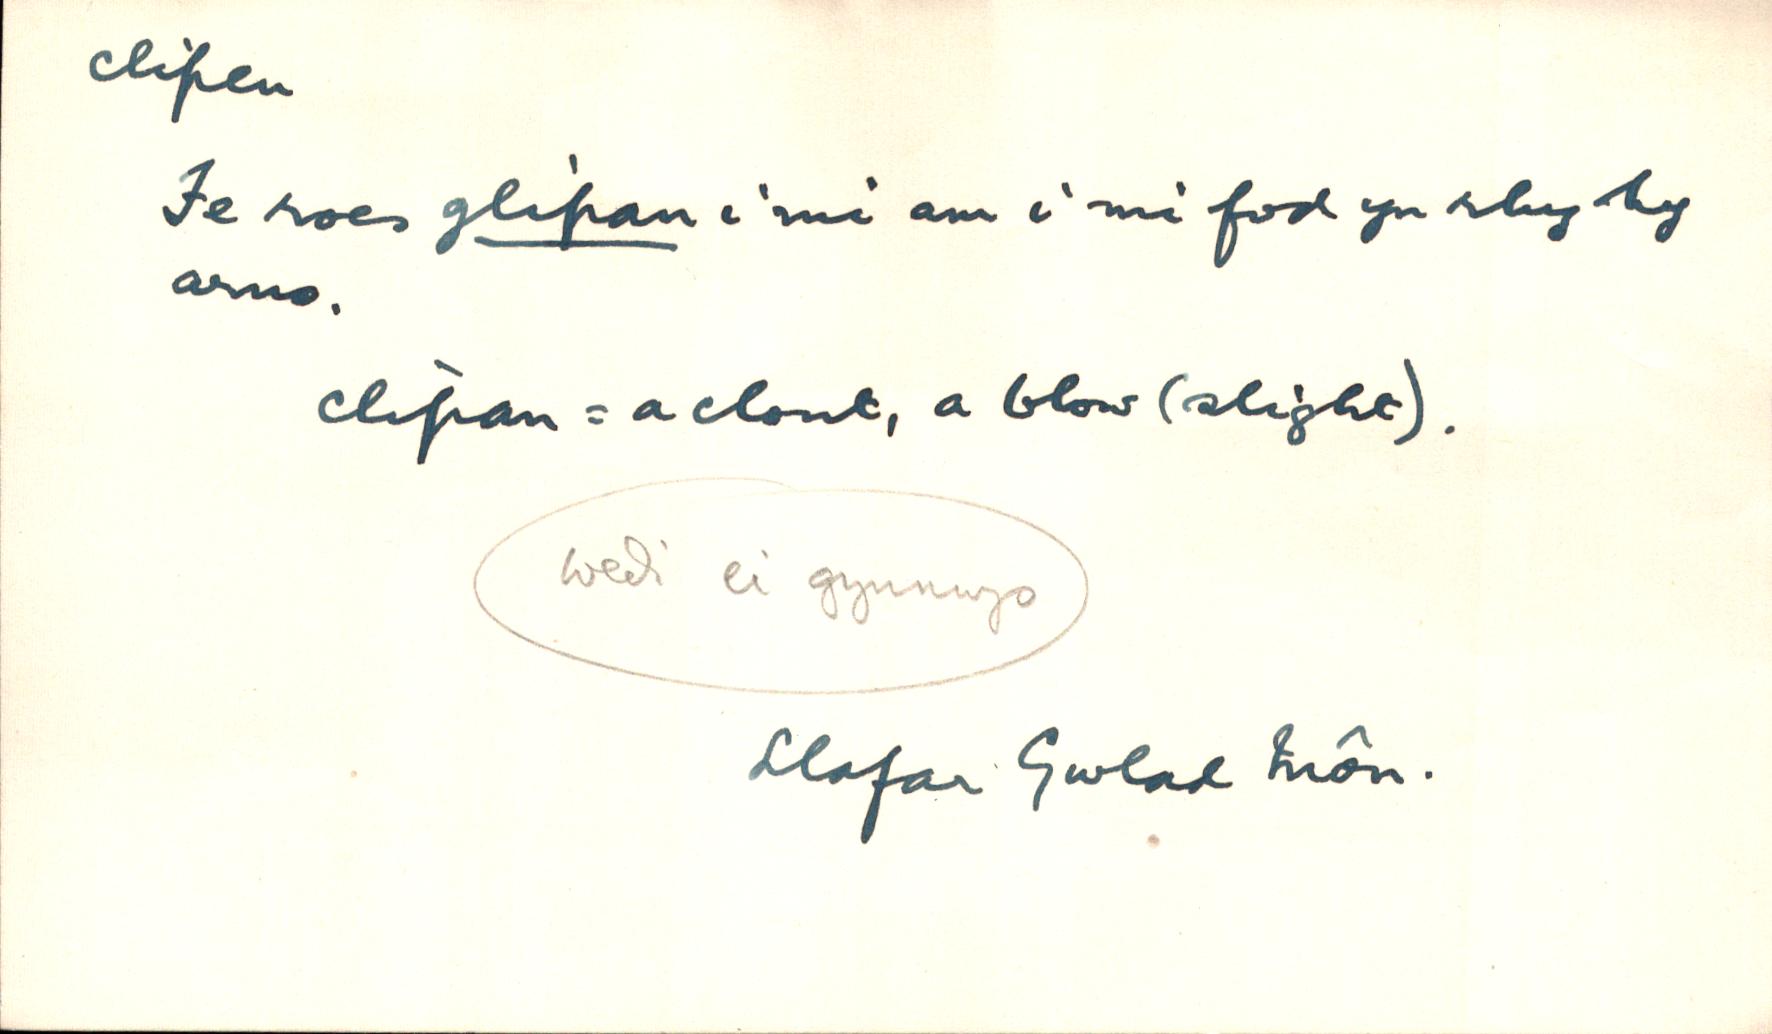 clipen
Fe roes glipan i mi am i mi fod yn rhy hy
arno.
clipan = a clout, a blow (slight).
wedi ei gynnwys
Llafar Gwlad Môn.